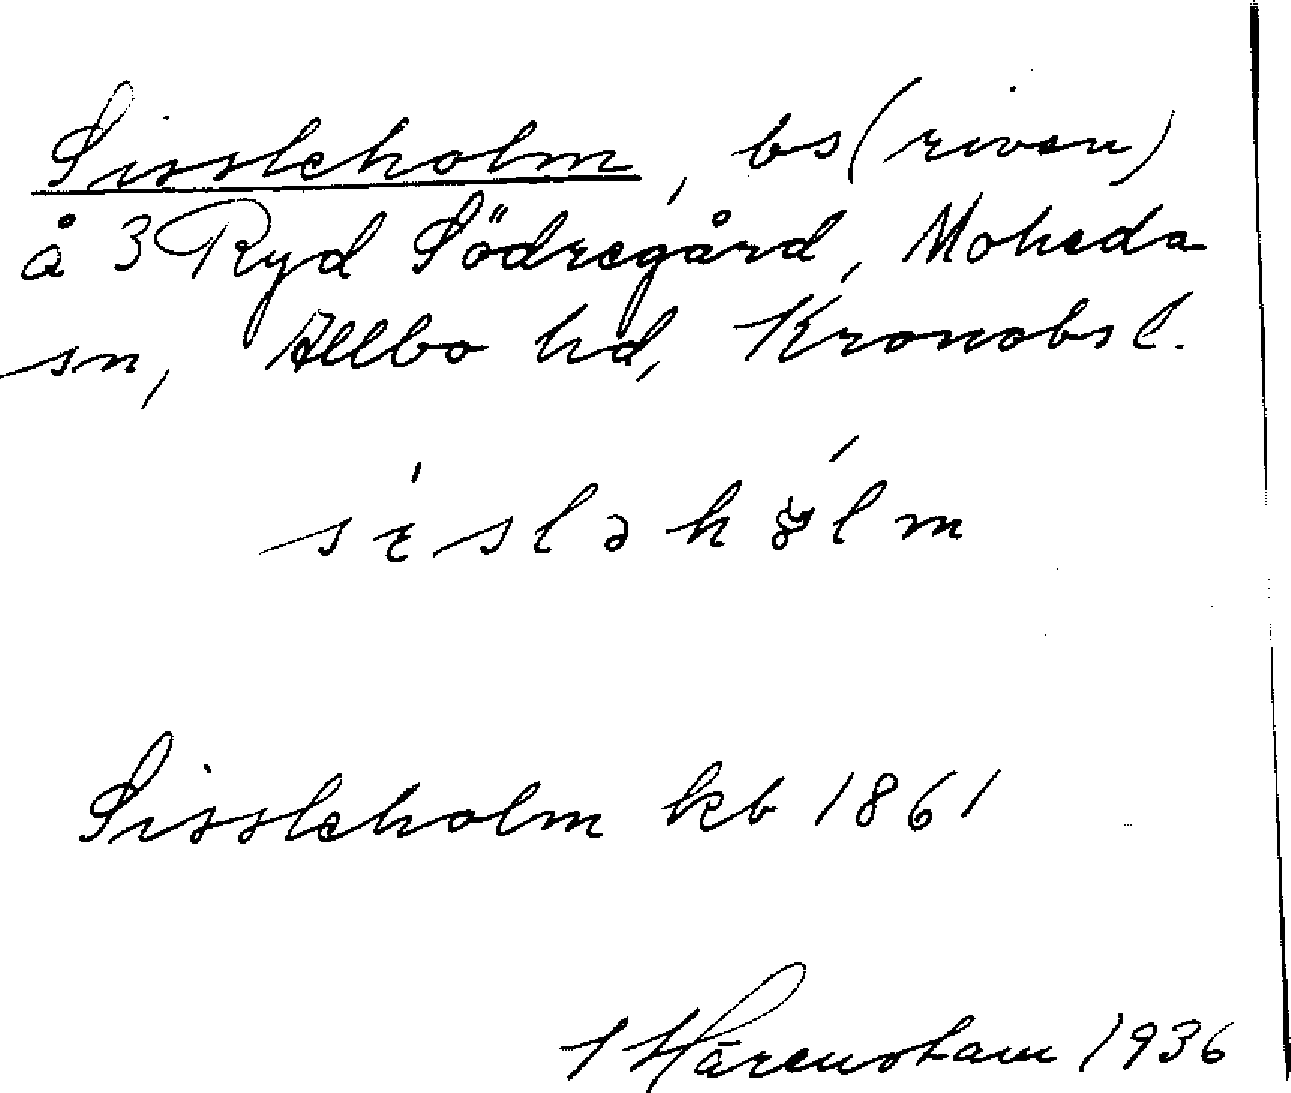 Sissleholm, bs (riven)
å 3 Ryd Södregård, Moheda
sn, Allbo hd, Kronobs l.
sisləhålm
Sissleholm kb 1861
1936